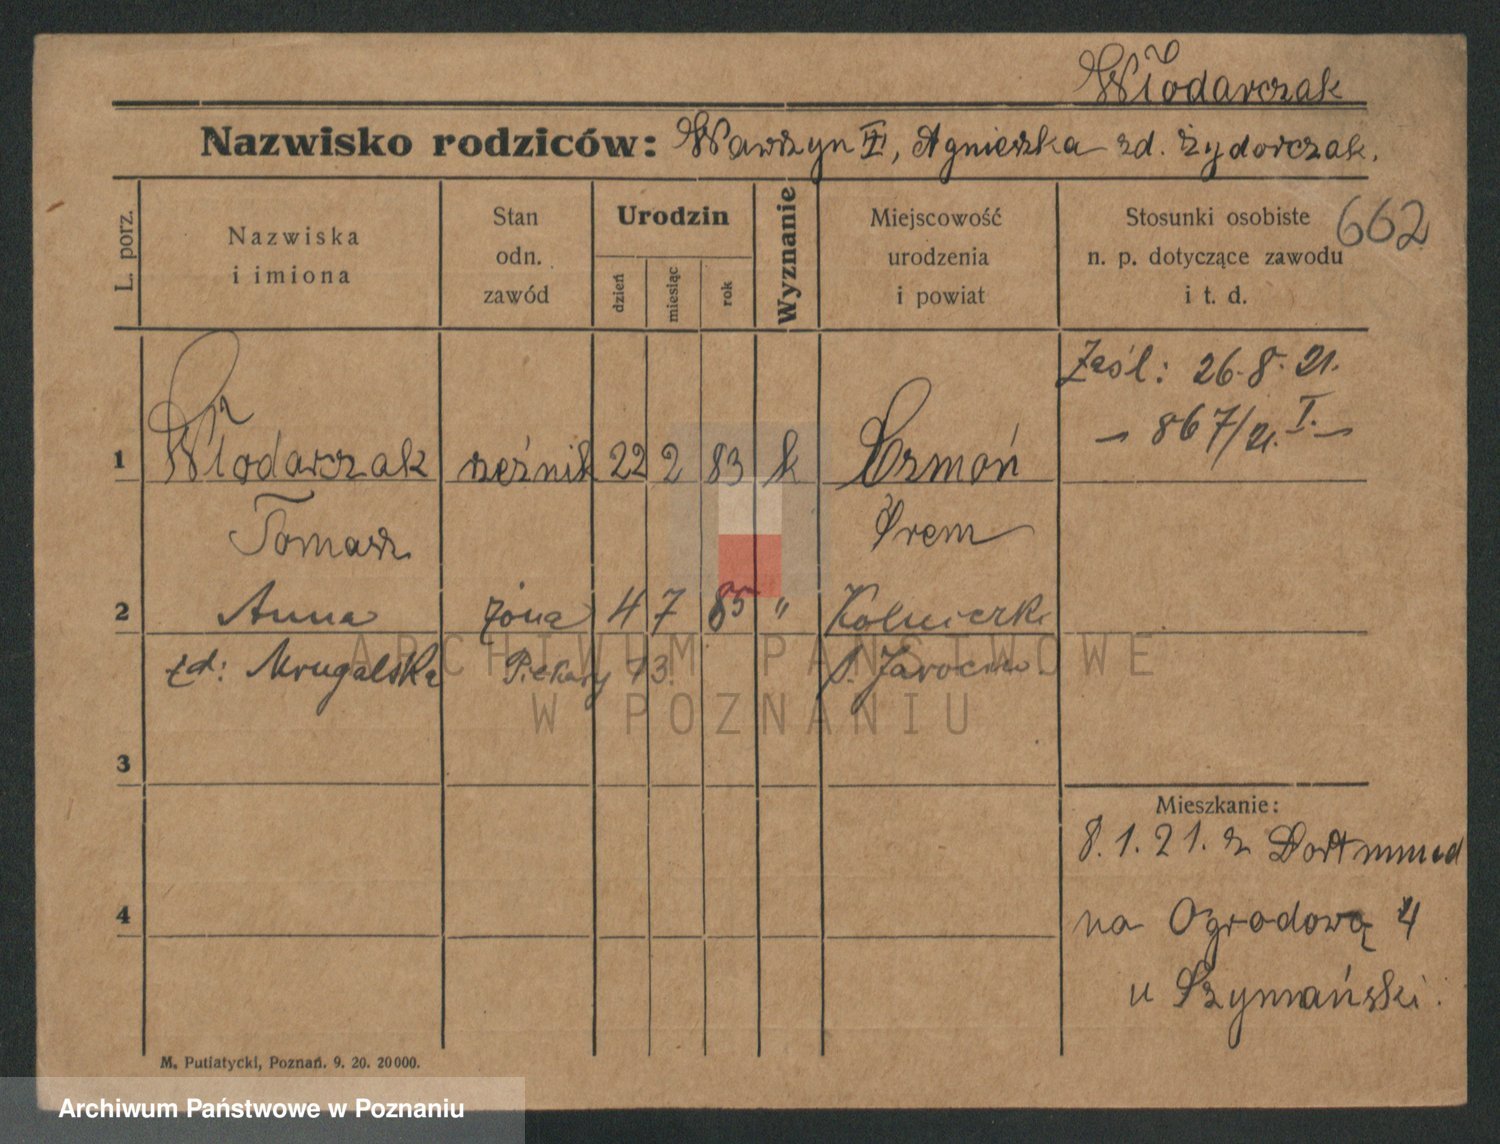 Włodarczak
Nazwisko rodziców: Wawrzyn II, Agnieszka zd. Żydorczak.
662
L. porz.
Nazwiska
i imiona
Stan
odn.
zawód
Urodzin
dzień
miesiąc
rok
Wyznanie
Miejscowość
urodzenia
i powiat
Stosunki osobiste
n. p. dotyczące zawodu
i t. d.
Zaśl: 26.8.21.
— 867/21. I. —
1 Włodarczak rzeźnik 22 2 83 k Czmoń
Tomasz Śrem
2 Anna żona 4 7 85 " Kolniczki
zd: Mrugalska Piekary 13. p. Jarocin
3
4
Mieszkanie:
8.1.21. z Dortmund
na Ogrodową 4
u Szymański.
M. Putiatycki, Poznań. 9. 20. 20000.
ARCHIWUM PAŃSTWOWE
W POZNANIU
Archiwum Państwowe w Poznaniu